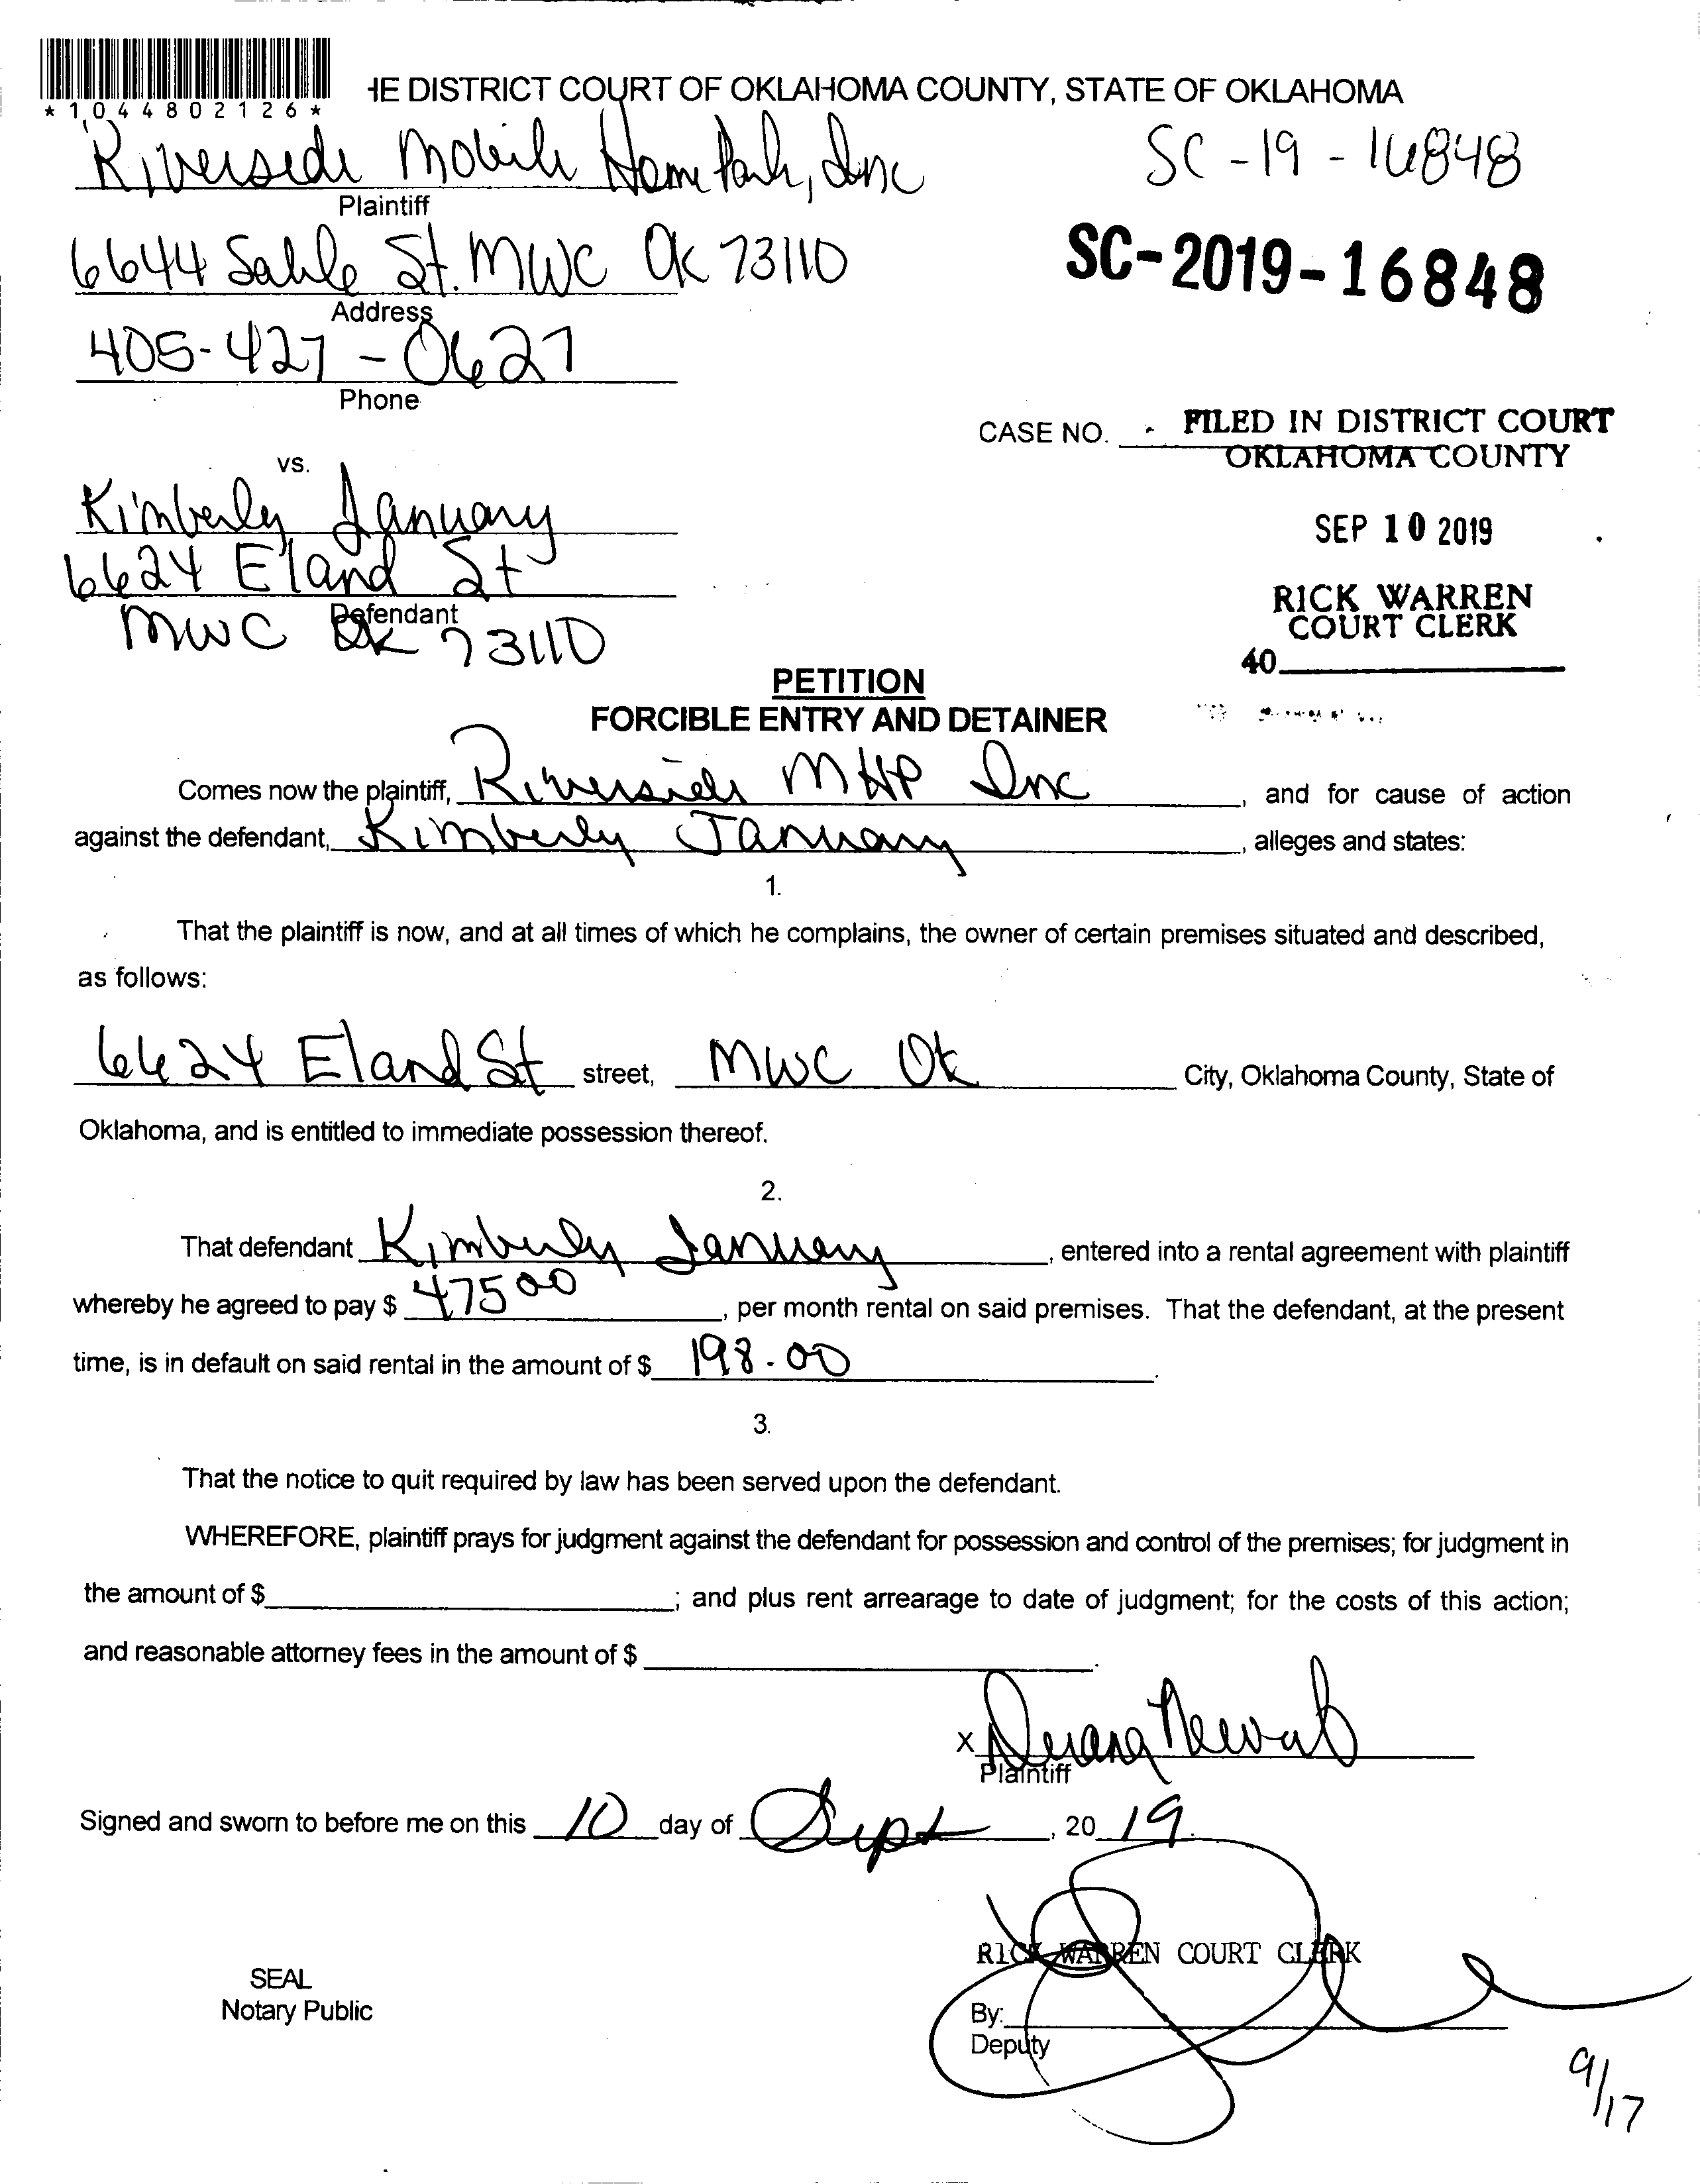 *1044802126*
HE DISTRICT COURT OF OKLAHOMA COUNTY, STATE OF OKLAHOMA
Riverside Mobile Home Park, Inc
SC-19-16848
Plaintiff
6644 Sable St. MWC Ok 73110
SC-2019-16848
Address
405-427-0627
Phone
CASE NO.
FILED IN DISTRICT COURT
OKLAHOMA COUNTY
vs.
Kimberly January
SEP 10 2019
6624 Eland St
RICK WARREN
COURT CLERK
Defendant
MWC Ok 73110
40
PETITION
FORCIBLE ENTRY AND DETAINER
Comes now the plaintiff, Riverside MHP Inc, and for cause of action
against the defendant, Kimberly January, alleges and states:
1.
That the plaintiff is now, and at all times of which he complains, the owner of certain premises situated and described,
as follows:
6624 Eland St street, MWC Ok City, Oklahoma County, State of
Oklahoma, and is entitled to immediate possession thereof.
2.
That defendant Kimberly January, entered into a rental agreement with plaintiff
whereby he agreed to pay $ 475 00, per month rental on said premises. That the defendant, at the present
time, is in default on said rental in the amount of $ 198.00.
3.
That the notice to quit required by law has been served upon the defendant.
WHEREFORE, plaintiff prays for judgment against the defendant for possession and control of the premises; for judgment in
the amount of $; and plus rent arrearage to date of judgment; for the costs of this action;
and reasonable attorney fees in the amount of $.
X
Plaintiff
Signed and sworn to before me on this 10 day of Sept, 20 19.
RICK WARREN COURT CLERK
SEAL
Notary Public
By:
Deputy
9/17